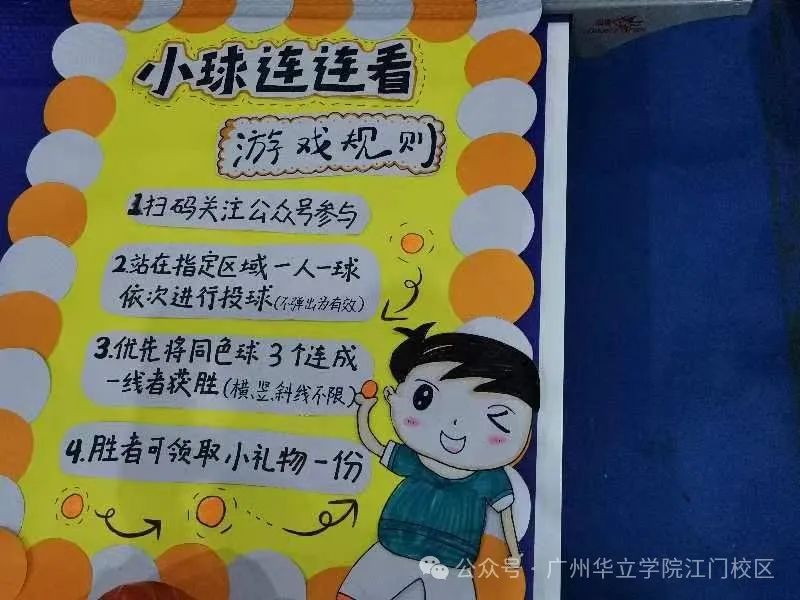 小球连连看
游戏规则
1扫码关注公众号参与
2.站在指定区域一人一球
依次进行投球(不弹出为有效)
3.优先将同色球3个连成
一线者获胜(横、竖、斜线不限)
4.胜者可领取小礼物一份
公众号·广州华立学院江门校区